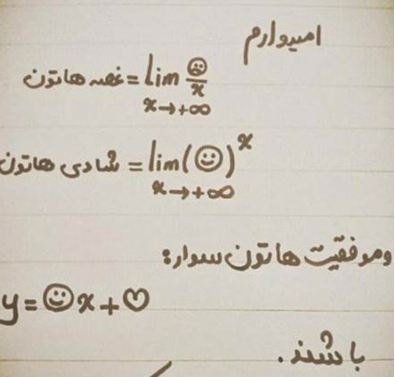 امیدوارم
غصه هاتون = lim ☹/x
x→+∞
شادی هاتون = lim(☺)^x
x→+∞
وموفقیت هاتون سوار:
y=☺x+♡
باشند.